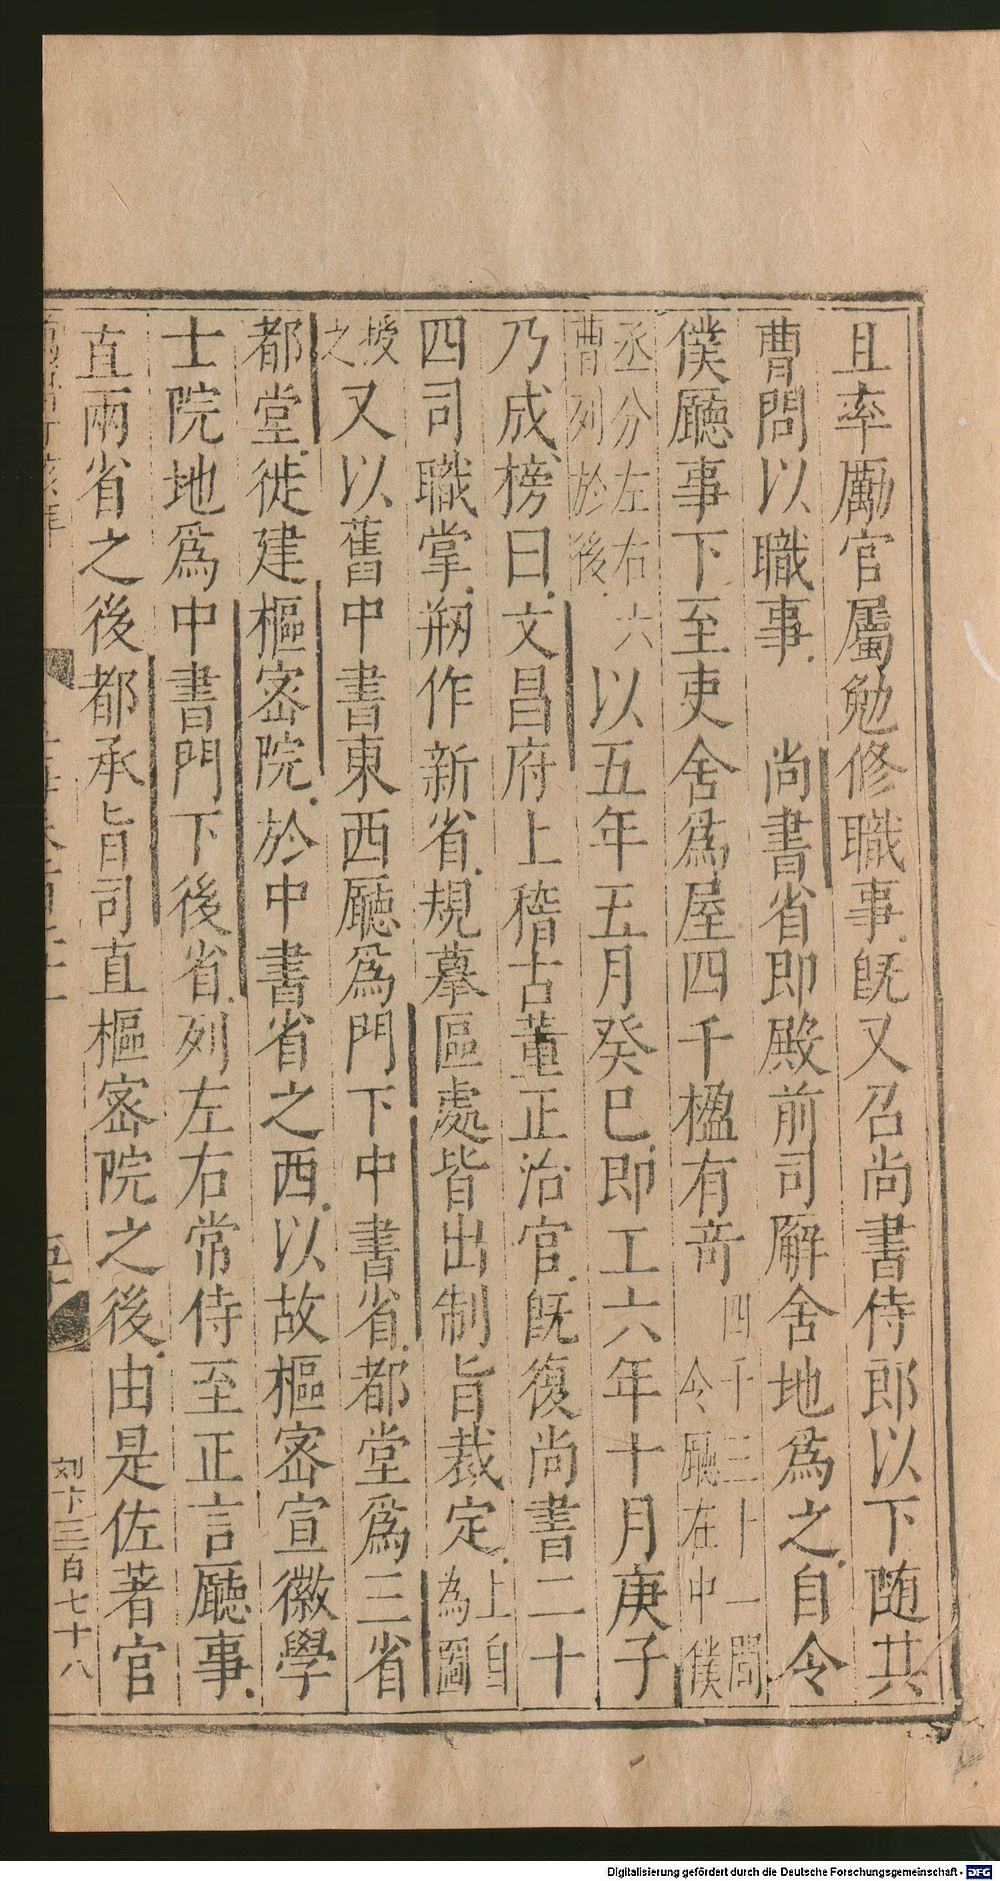 且率厲官屬勉修職事既又召尚書侍郎以下随共
曹問以職事　尚書省即殿前司廨舍地為之自令
僕廳事下至吏舍為屋四千楹有竒四千三十一間
令廳在中僕
丞分左右六
曹列於後以五年五月癸巳即工六年十月庚子
乃成榜曰文昌府上稽古董正治官既復尚書二十
四司職掌剏作新省規摹區處皆出制旨裁定上自
為圖
授
之又以舊中書東西廳為門下中書省都堂為三省
都堂徙建樞密院於中書省之西以故樞密宣徽學
士院地爲中書門下後省列左右常侍至正言廳事
直兩省之後都承旨司直樞密院之後由是佐著官
五十
刘卞三百七十八
Digitalisierung gefördert durch die Deutsche Forschungsgemeinschaft - DFG